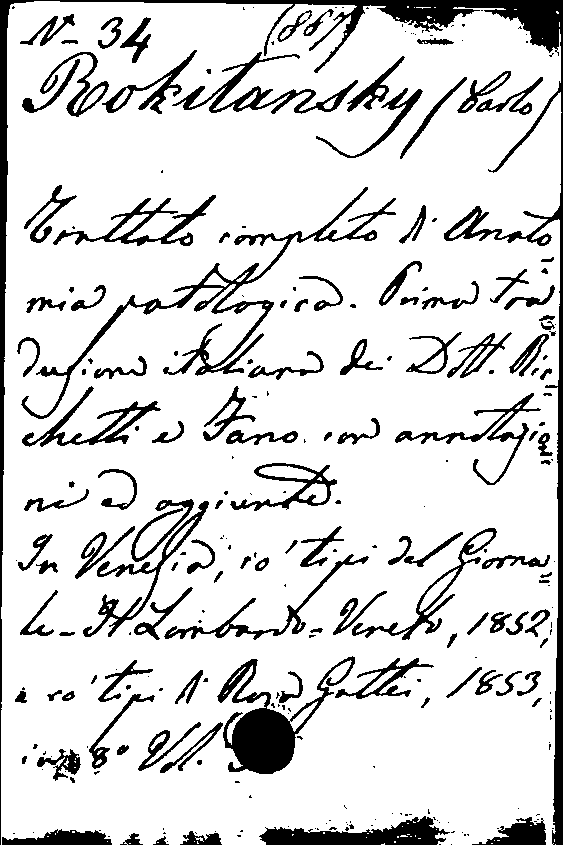 N- 34 (887)
Rokitansky (Carlo)
Trattato completo di Anato
mia patologica. Prima tra
duzione italiana dei Dott. Ric
chetti e Fano con annotazio
ni ed aggiunte.
In Venezia, co' tipi del Giorna
le - Il Lombardo=Veneto, 1852,
e co' tipi di Rosa Gattei, 1853,
in 8° Vol.